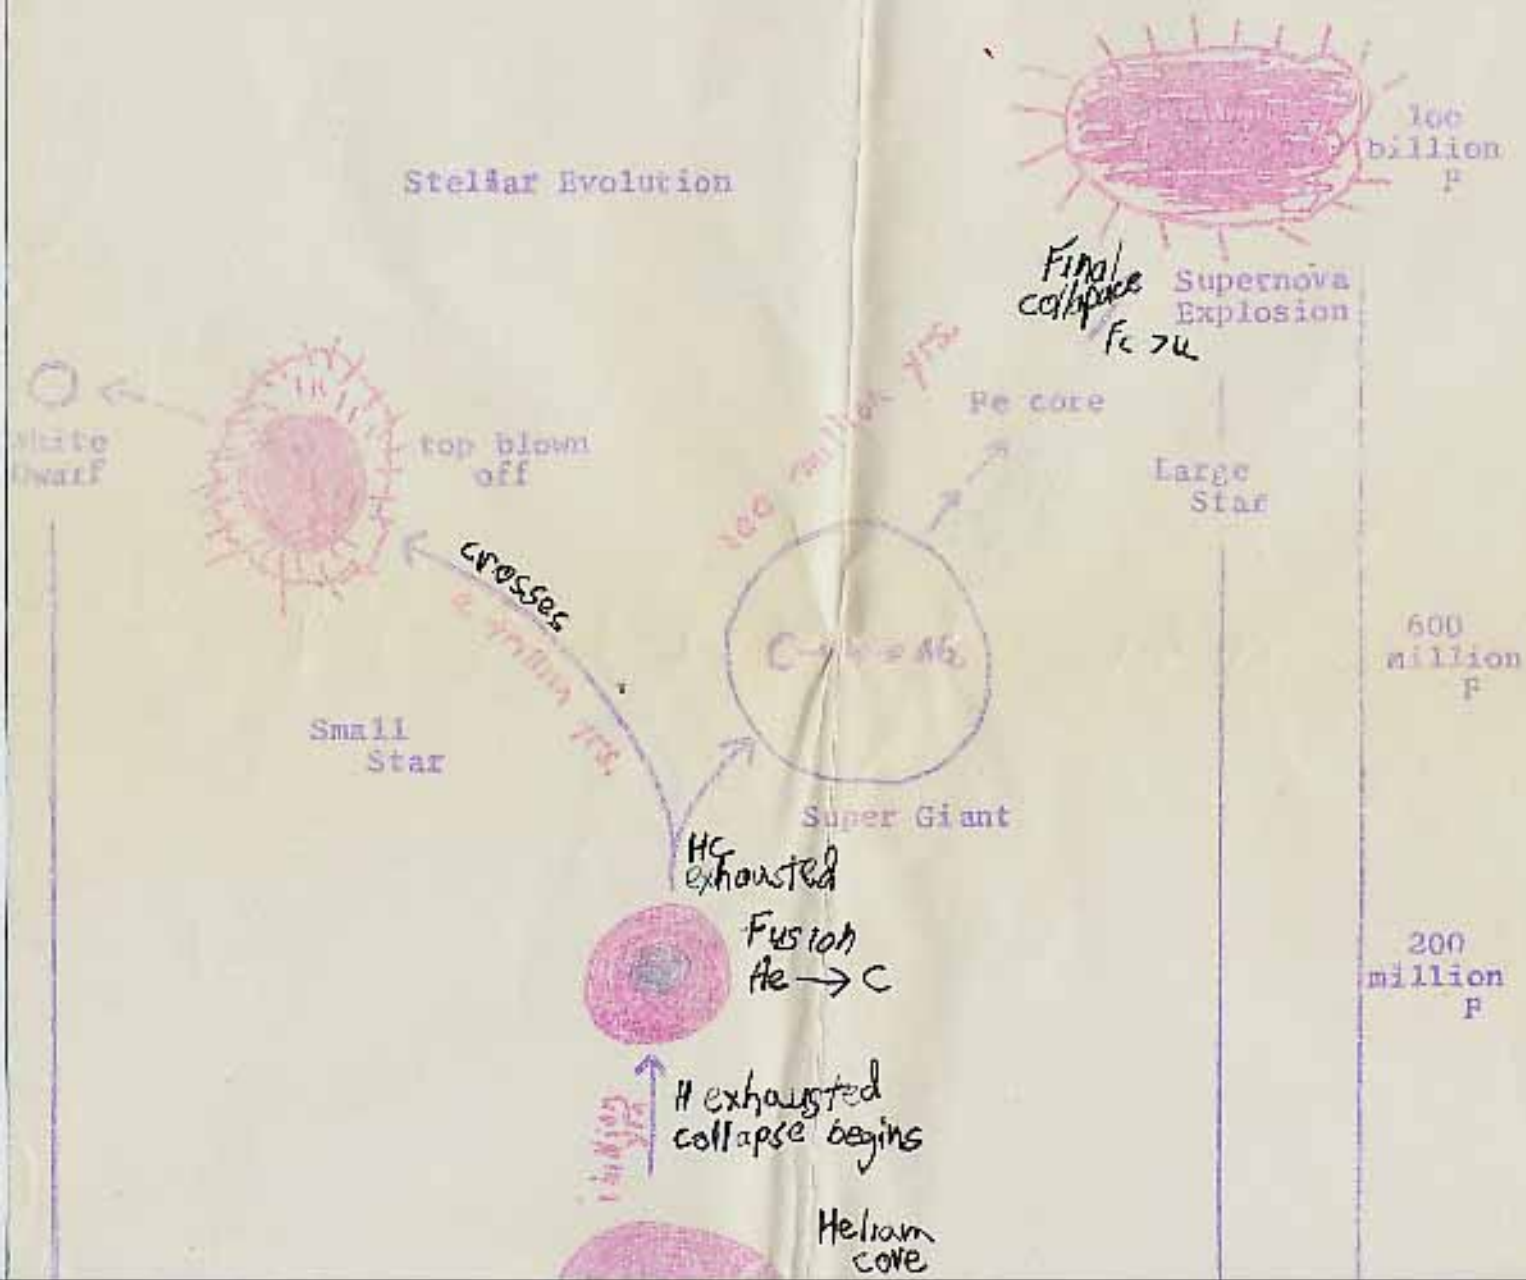 100
billion
F
Stellar Evolution
Final
collapace
Supernova
Explosion
Fc > u
yrs.
Fe core
White
Dwarf
top blown
off
Large
Star
100 million
crosses
a million yrs.
600
million
F
C →
Small
Star
Super Giant
HC
exhausted
Fusion
He → C
200
million
F
H exhausted
collapse begins
Heliam
core